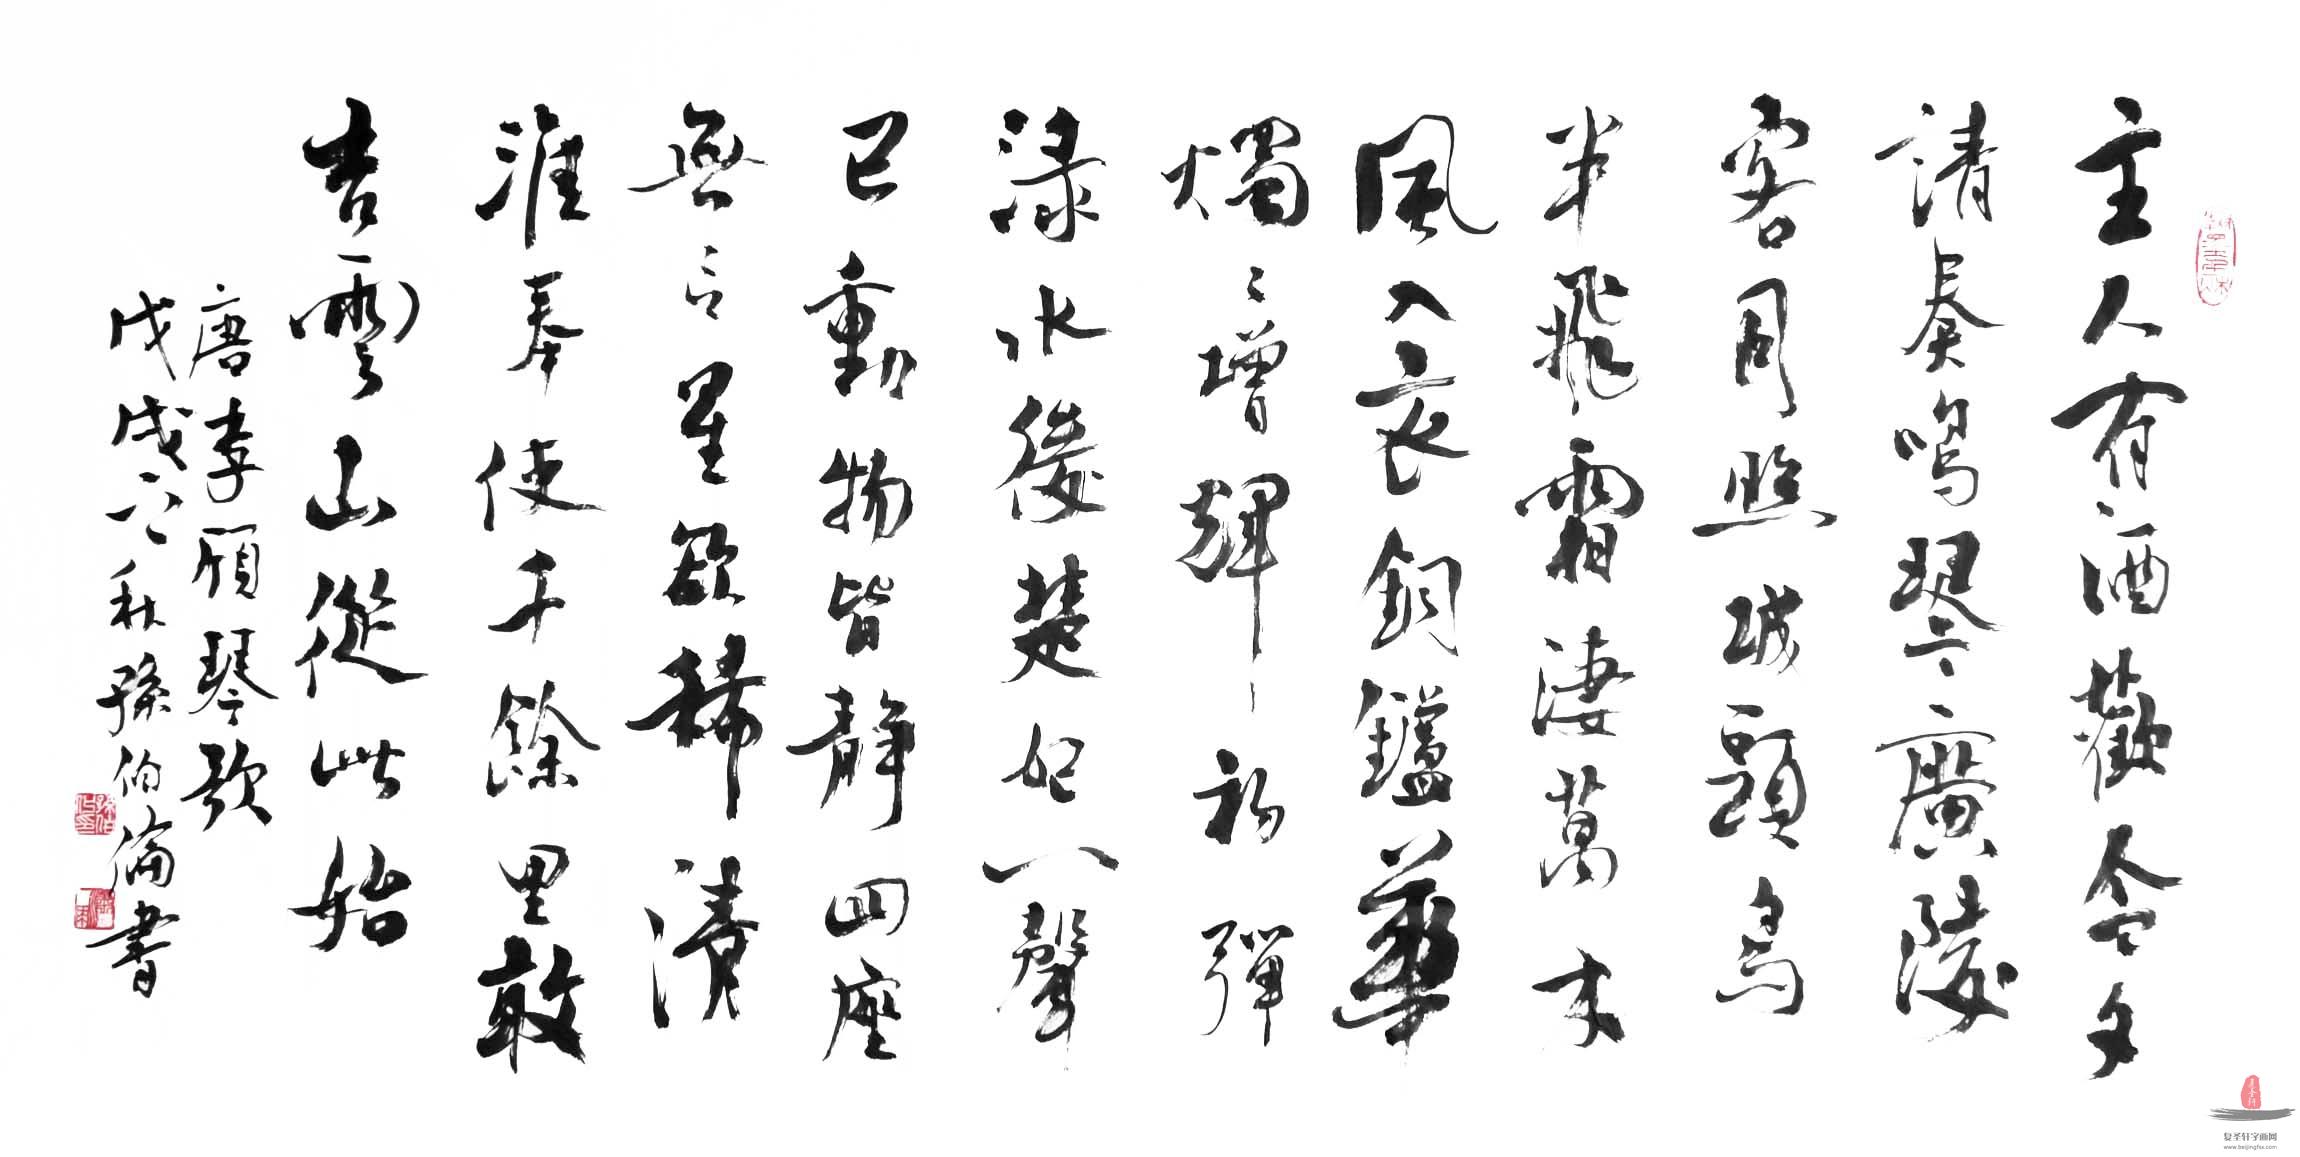 主人有酒歡今夕
請奏鳴琴廣陵
客月照城頭烏
半飛霜淒萬木
風入衣銅鑪華
燭〻增輝初彈
淥水後楚妃一聲
已動物皆靜四座
無言星欲稀清
淮奉使千餘里敢
告雲山從此始
唐李頎琴歌
戊戌之秋孫伯倫書
复圣轩
复圣轩字画网
www.beijingfsx.com